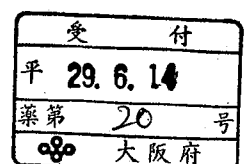 受 付
平 29. 6. 14
薬第 20 号
大阪府